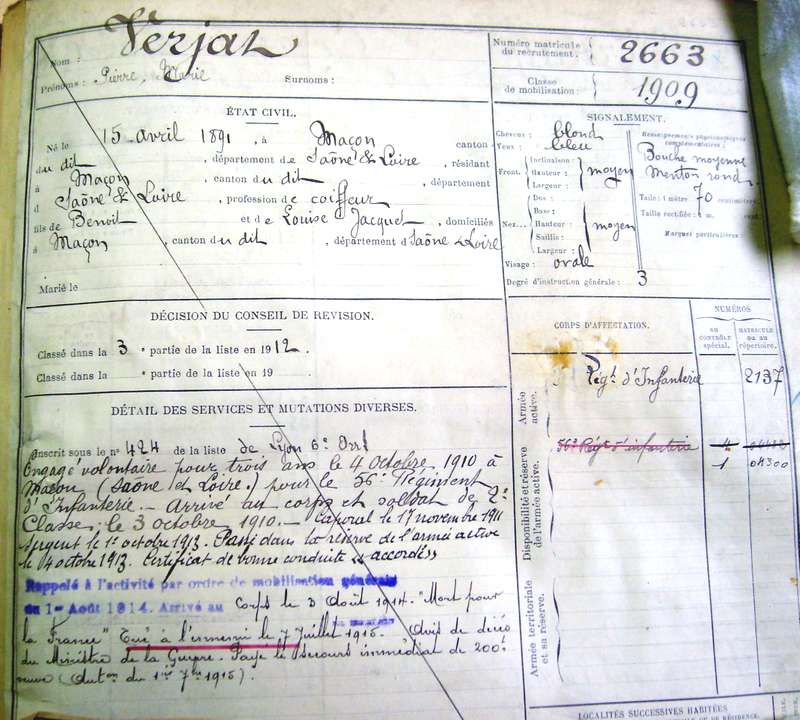 Verjat
Nom :
Prénoms : Pierre, Marie Surnoms :
Numéro matricule du recrutement : 2663
Classe de mobilisation : 1909
ÉTAT CIVIL.
Né le 15 avril 1891, à Maçon canton
du dit, département de Saône & Loire, résidant
à Maçon, canton du dit, département
d Saône & Loire, profession de coiffeur
fils de Benoit et de Louise Jacquet, domiciliés
à Maçon, canton du dit, département d Saône & Loire
Marié le
SIGNALEMENT.
Cheveux : blond
Yeux : bleu
Front. Inclinaison : Hauteur : Largeur : moyen
Nez... Dos : Base : Hauteur : Saillie : Largeur : moyen
Visage : ovale
Renseignements physionomiques complémentaires :
Bouche moyenne
Menton rond.
Taille : 1 mètre 70 centimètres.
Taille rectifiée : 1 m.
Marques particulières :
Degré d'instruction générale : 3
DÉCISION DU CONSEIL DE REVISION.
Classé dans la 3 e partie de la liste en 1912.
Classé dans la e partie de la liste en 19
DÉTAIL DES SERVICES ET MUTATIONS DIVERSES.
Inscrit sous le n° 424 de la liste de Lyon 6e Arrt
Engagé volontaire pour trois ans le 4 octobre 1910 à
Macon (Saône et Loire.) pour le 56e Régiment
d'Infanterie. _ Arrivé au corps et soldat de 2e
Classe, le 3 octobre 1910. _ Caporal le 17 novembre 1911
Sergent le 1er octobre 1913. Passé dans la réserve de l'armée active
le 4 octobre 1913. Certificat de bonne conduite "accordé"
Rappelé à l'activité par ordre de mobilisation générale
du 1er Août 1914. Arrivé au Corps le 3 Août 1914. "Mort pour
la France" Tué à l'ennemi le 7 Juillet 1915. Avis de décès
du Ministre de la Guerre. Payé le secours immédiat de 200f
veuve (Auton du 1915).
CORPS D'AFFECTATION.
NUMÉROS
AU CONTRÔLE spécial.
MATRICULE ou au répertoire.
Armée active.
Régt d'Infanterie 2137
Disponibilité et réserve de l'armée active.
56e Régt d'infanterie
1 04300
Armée territoriale et sa réserve.
LOCALITÉS SUCCESSIVES HABITÉES